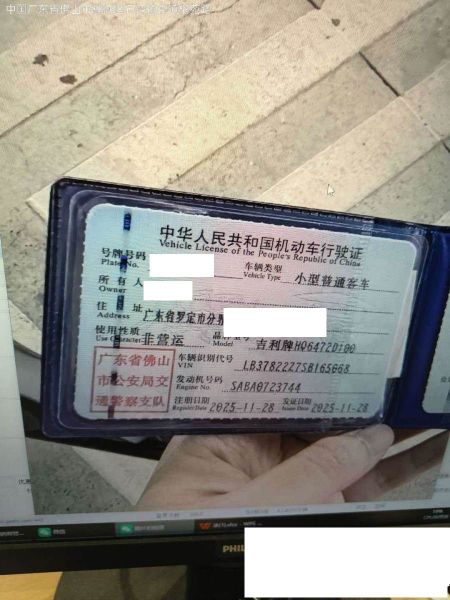 中华人民共和国机动车行驶证
Vehicle License of the People's Republic of China
号牌号码
Plate No.
车辆类型
Vehicle Type
小型普通客车
所有人
Owner
住址
Address
广东省罗定市分界
使用性质
Use Character
非营运
Model
吉利牌HQ6472D100
广东省佛山
市公安局交
通警察支队
车辆识别代号
VIN
LB3782227SB165068
发动机号码
Engine No.
SABA0723744
注册日期
Register Date
2025-11-28
发证日期
Issue Date
2025-11-28
PHIL